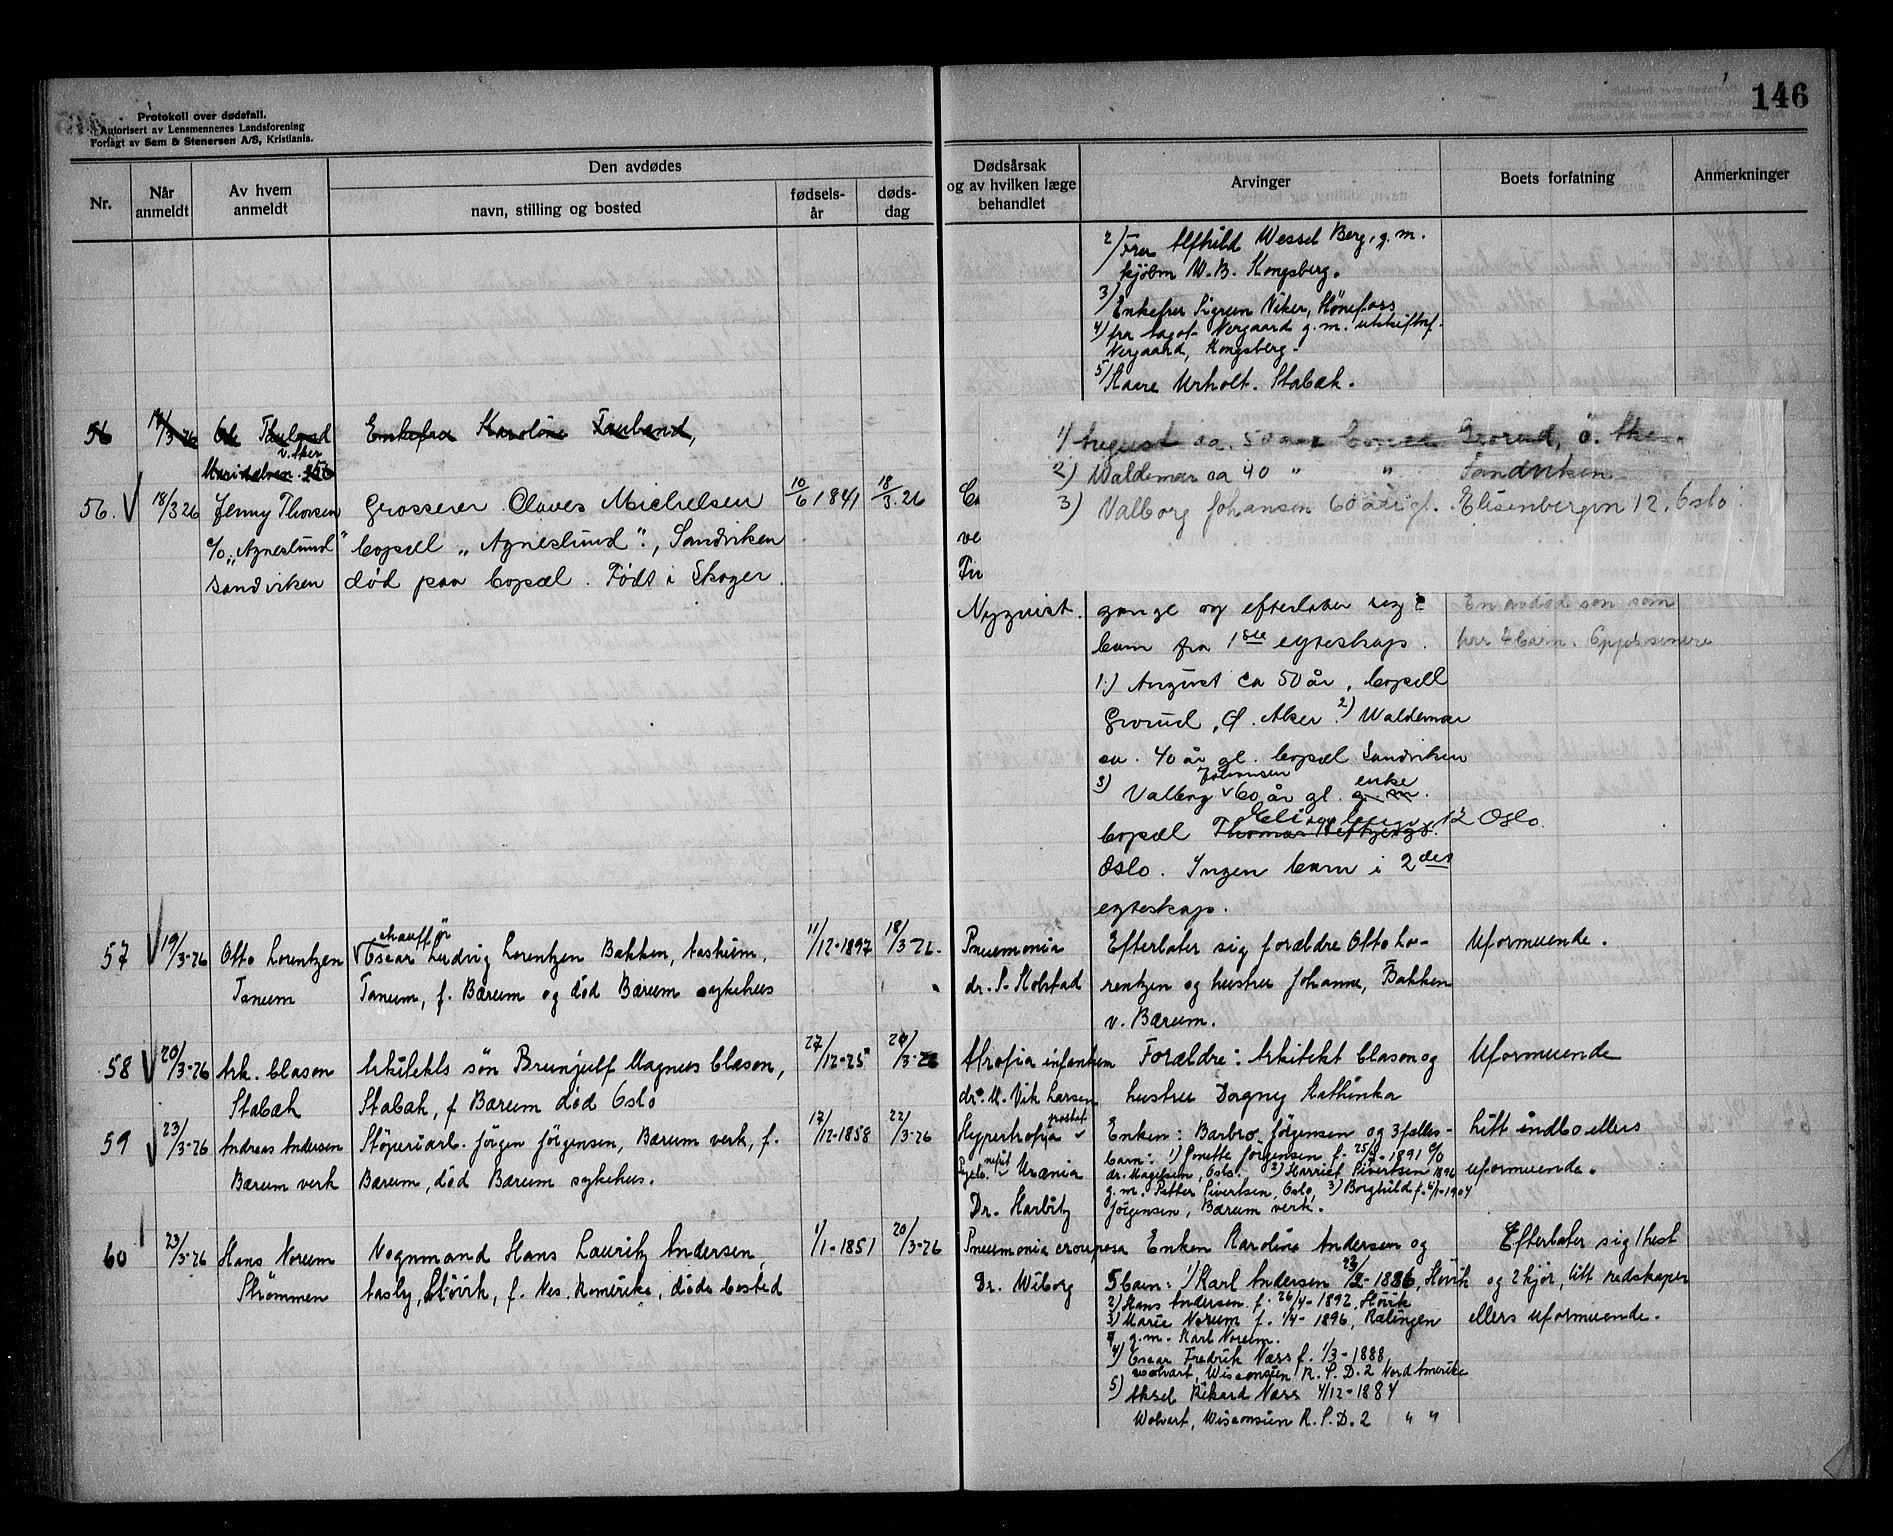 146
Protokoll over dødsfall.
Autorisert av Lensmennenes Landsforening
Forlagt av Sem & Stenersen A/S, Kristiania.
Nr.
Når anmeldt
Av hvem anmeldt
Den avdødes
navn, stilling og bosted
fødsels-år
døds-dag
Dødsårsak og av hvilken læge behandlet
Arvinger
Boets forfatning
Anmerkninger
2) Fru Alfhild Wessel Berg, g.m.
kjøbm W.B. Kongsberg.
3) Enkefru Sigrun Viker, Hønefoss
4) fru Aagot Norgaard g.m. utskiftnf.
Norgaard, Kongsberg.
5) Kaare Urholt. Stabæk.
56 Enkefru Karoline
v. Aker
1) August ca. 50 aar Grorud, ø. Aker
2) Waldemar ca 40 " " Sandviken
3) Valborg Johansen 60 år gl. Elisenbergvn 12, Oslo
56. 18/3 26 Jenny Thorsen Grosserer Claves Michelsen 10/6 1841 18/3 26
c/o "Agneslund" bopæll "Agneslund", Sandviken
Sandviken død paa bopæl. Født i Skoger.
ve
Nyquist. gange og efterlater seg
barn fra 1ste egteskap.
En avdød søn som
har 4 barn. Oppgis senere
1) August ca 50 år, bopæll
Grorud, Ø. Aker. 2) Waldemar
ca. 40 år gl. bopæl Sandviken
3) Valborg Johansen 60 år gl. enke g. m.
bopæl 12 Oslo.
Oslo. Ingen barn i 2det
egteskap.
57 19/3-26 Otto Lorentzen chauffør Oscar Ludvig Lorentzen Bakken, 11/12-1897 18/3-26. Pneumonia Efterlater sig forældre Otto Lo- Uformuende.
Tanum Tanum, f. Bærum og død Bærum sykehus dr. S. Kolstad rentzen og hustru Johanne, Bakken
v. Bærum.
58 20/3-26 Ark. Clason Arkitekts søn Brunjulf Magnus Clason, 27/12-25 20/3-26 Atrofia infantum Forældre: Arkitekt Clason og Uformuende
Stabæk Stabæk, f Bærum død Oslo dr. M. Vik Larsen hustru Dagny Kathinka
59 23/3-26 Andreas Andersen Støperiarb. Jørgen Jørgensen, Bærum verk, f. 17/12-1858 22/3-26 Hypertrofia prostat Enken: Barbro Jørgensen og 3 fælles- Litt indbo ellers
Bærum verk Bærum, død Bærum sykehus. Uræmia barn: 1) Jørgensen f. 1891 c/o uformuende.
dr. Magelsen, Oslo. 2) Harriet Sivertsen 1896
g.m. Petter Sivertsen, Oslo, 3) Borghild f. 6/1-1904
Dr. Harbitz Jørgensen, Bærum verk.
60 23/3-26 Hans Norum Vognmand Hans Lauritz Andersen, 1/1-1851 20/3-26 Pneumonia crouposa Enken Karoline Andersen og Efterlater sig 1 hest
Strømmen Aasly, Høvik, f. Nes. Romerike, døds bosted Dr. Wiborg 5 barn: 1) Karl Andersen 23/2-1886, Høvik og 2 kjør, litt redskaper
2) Hans Andersen f. 26/4-1892, Høvik
3) Marie Norum f. 1/4-1896, Rælingen ellers uformuende.
g.m. Karl Norum.
4) Oscar Fredrik Næss f. 1/3-1888
Wolvart, Wisconsin R.F.D.2 Nord Amerika
5) Aksel Rikard Næss 4/12-1884
Wolvart, Wisconsin R.F.D.2 " "